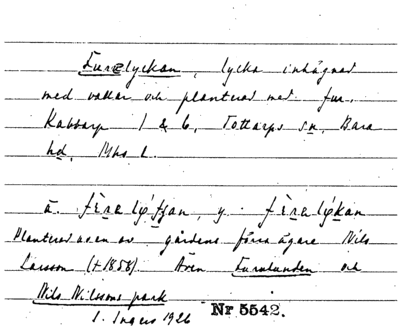 Furelyckan, lycka inhägnad
med vallar och planterad med fur.
Kabbarp 1 & 6, Tottarps sn, Bara
hd, Mhs l.
ä. fèrelýtjan, y. fèrelýkan
Planterad av gårdens förra ägare Nils
Larsson (†1858). Även Furulunden och
Nils Nilssons park
1. Ingers 1926 Nr 5542.